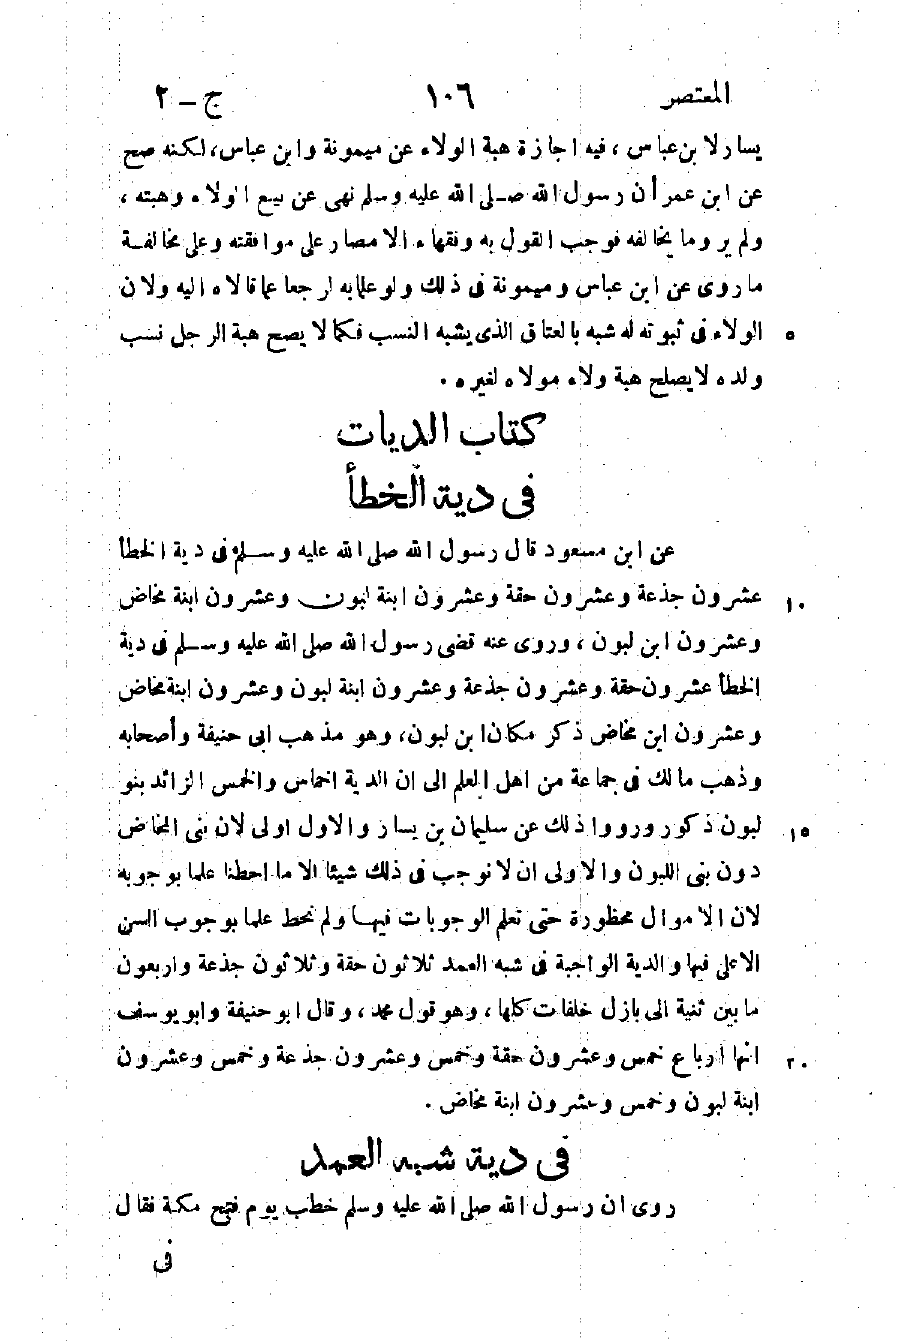 المعتصر ١٠٦ ج - ٢
يسار لابن عباس ، فيه اجازة هبة الولاء عن ميمونة وابن عباس، لكنه صح
عن ابن عمر أن رسول الله صلى الله عليه وسلم نهى عن بيع الولاء وهبته ،
ولم يرو ما يخالفه فوجب القول به وفقهاء الامصار على موافقته وعلى مخالفة
ما روى عن ابن عباس وميمونة فى ذلك ولو علما به لرجعا عما قالاه اليه ولان
الولاء فى ثبوته له شبه بالعتاق الذى يشبه النسب فكما لا يصح هبة الرجل نسب ٥
ولده لا يصلح هبة ولاء مولاه لغيره .
كتاب الديات
فى دية الخطأ
عن ابن مسعود قال رسول الله صلى الله عليه وسلم فى دية الخطأ
عشرون جذعة وعشرون حقة وعشرون ابنة لبون وعشرون ابنة مخاض ١٠
وعشرون ابن لبون ، وروى عنه قضى رسول الله صلى الله عليه وسلم فى دية
الخطأ عشرون حقة وعشرون جذعة وعشرون ابنة لبون وعشرون ابنة مخاض
وعشرون ابن مخاض ذكر مكان ابن لبون، وهو مذهب ابى حنيفة وأصحابه
وذهب مالك فى جماعة من اهل العلم الى ان الدية اخماس والخمس الزائد بنو
لبون ذكور ورووا ذلك عن سليمان بن يسار والاول اولى لان بنى المخاض ١٥
دون بنى اللبون والاولى ان لا نوجب فى ذلك شيئا الا ما احطنا علما بوجوبه
لان الاموال محظورة حتى تعلم الوجوبات فيها ولم نحط علما بوجوب السن
الاعلى فيها والدية الواجبة فى شبه العمد ثلاثون حقة وثلاثون جذعة واربعون
ما بين ثنية الى بازل خلفات كلها ، وهو قول محمد ، وقال ابو حنيفة وابو يوسف
انها ارباع خمس وعشرون حقة وخمس وعشرون جذعة وخمس وعشرون ٢٠
ابنة لبون وخمس وعشرون ابنة مخاض .
فى دية شبه العمد
روى ان رسول الله صلى الله عليه وسلم خطب يوم فتح مكة فقال
فى